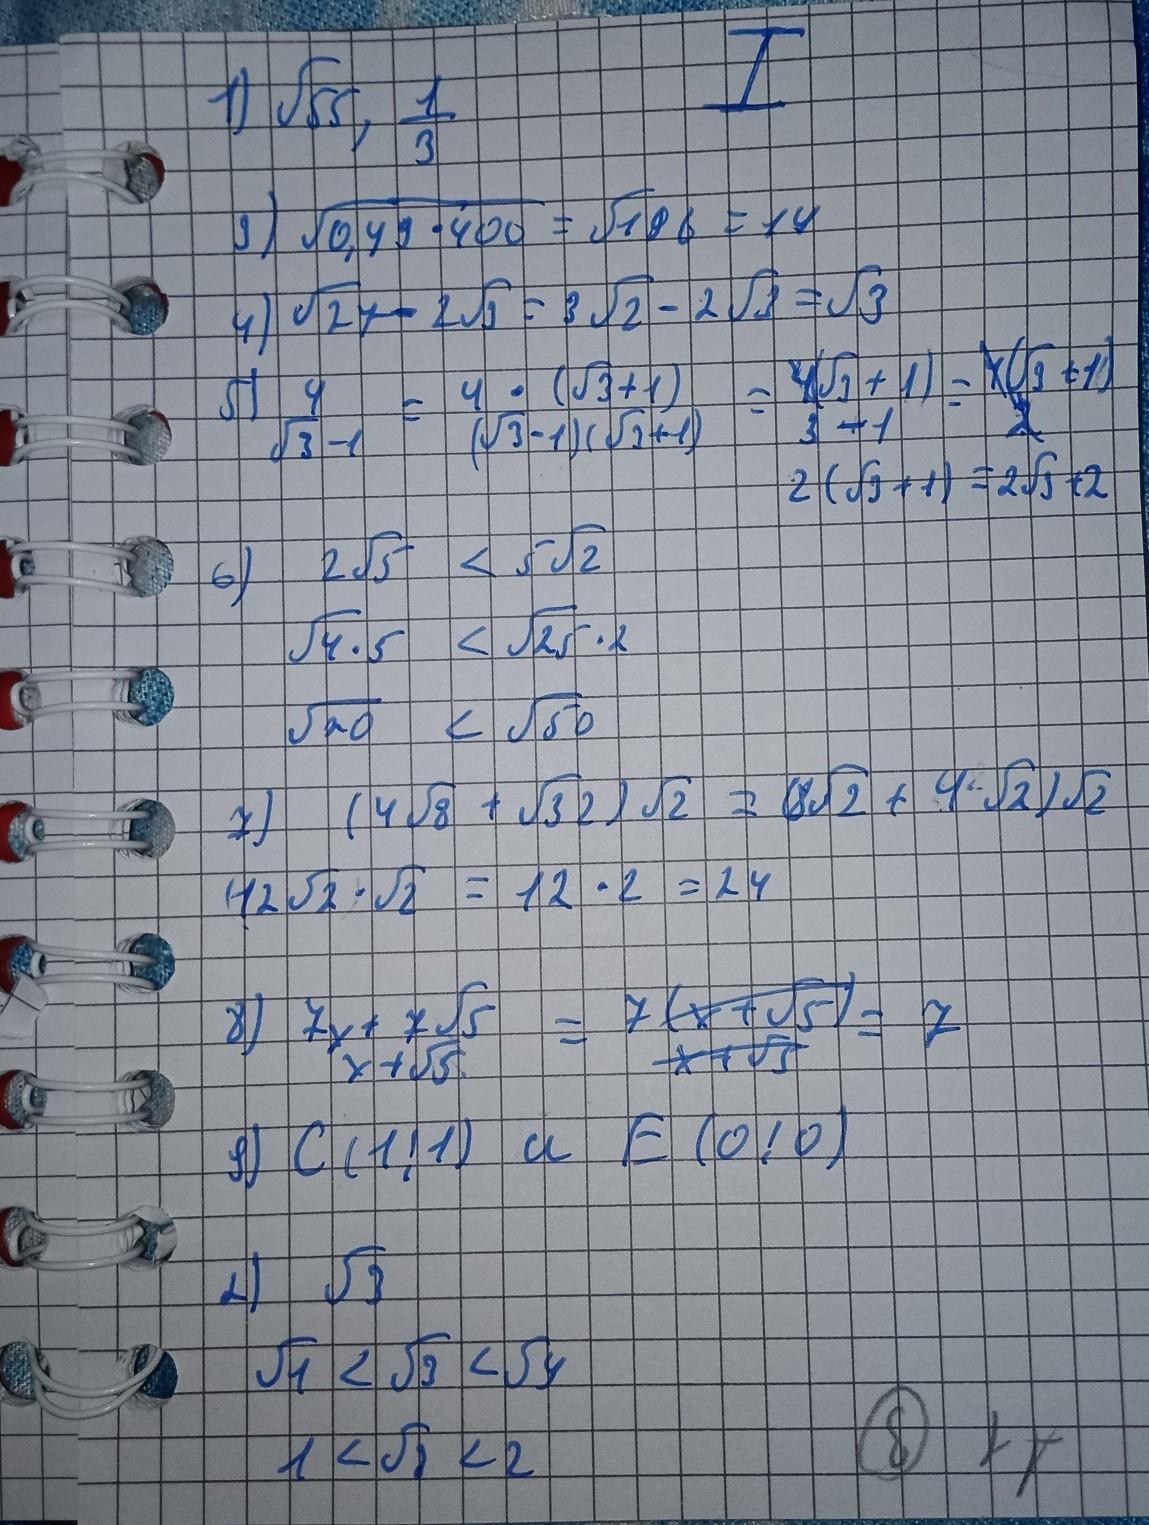 I
1) √55, 1/3
3) √0,49·400 = √196 = 14
4) √27 - 2√3 = 3√2 - 2√3 = √3
5) 4/(√3-1) = 4·(√3+1)/((√3-1)(√3+1)) = 4(√3+1)/(3+1) = 4(√3+1)/2
2(√3+1) = 2√3+2
6) 2√5 < 5√2
√4·5 < √25·2
√20 < √50
7) (4√8 + √32)√2 = (8√2 + 4·√2)√2
12√2·√2 = 12·2 = 24
8) (7x+7√5)/(x+√5) = 7(x+√5)/(x+√5) = 7
9) C(1;1) и E(0;0)
2) √3
√1 < √3 < √4
1 < √3 < 2
8